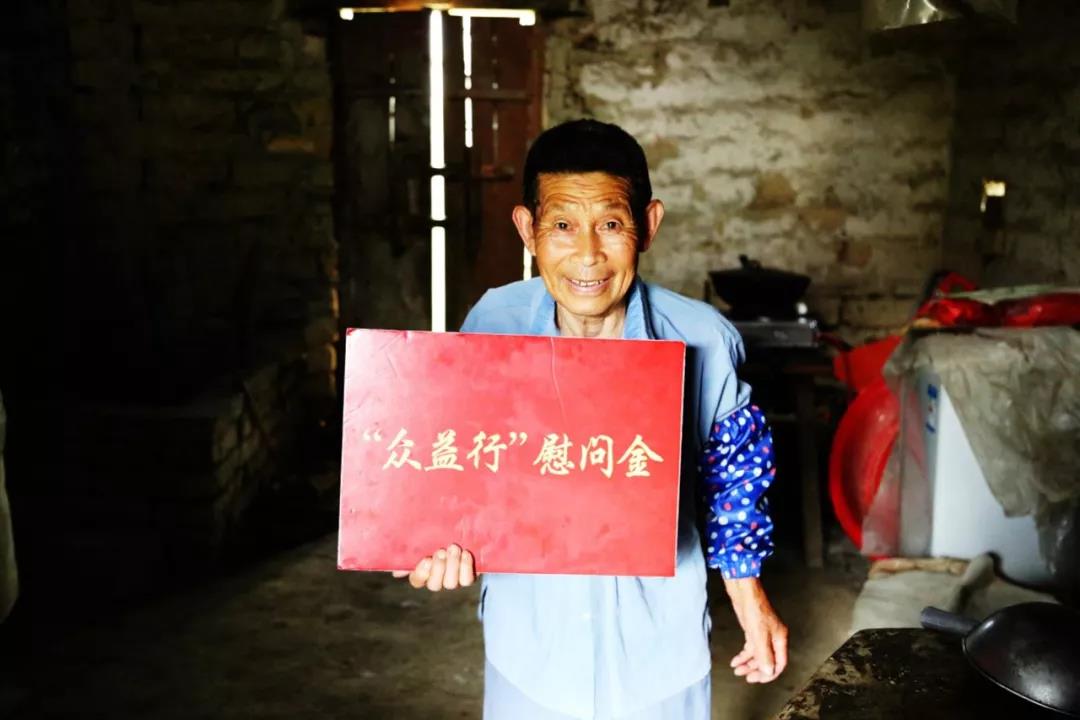 “众益行”慰问金